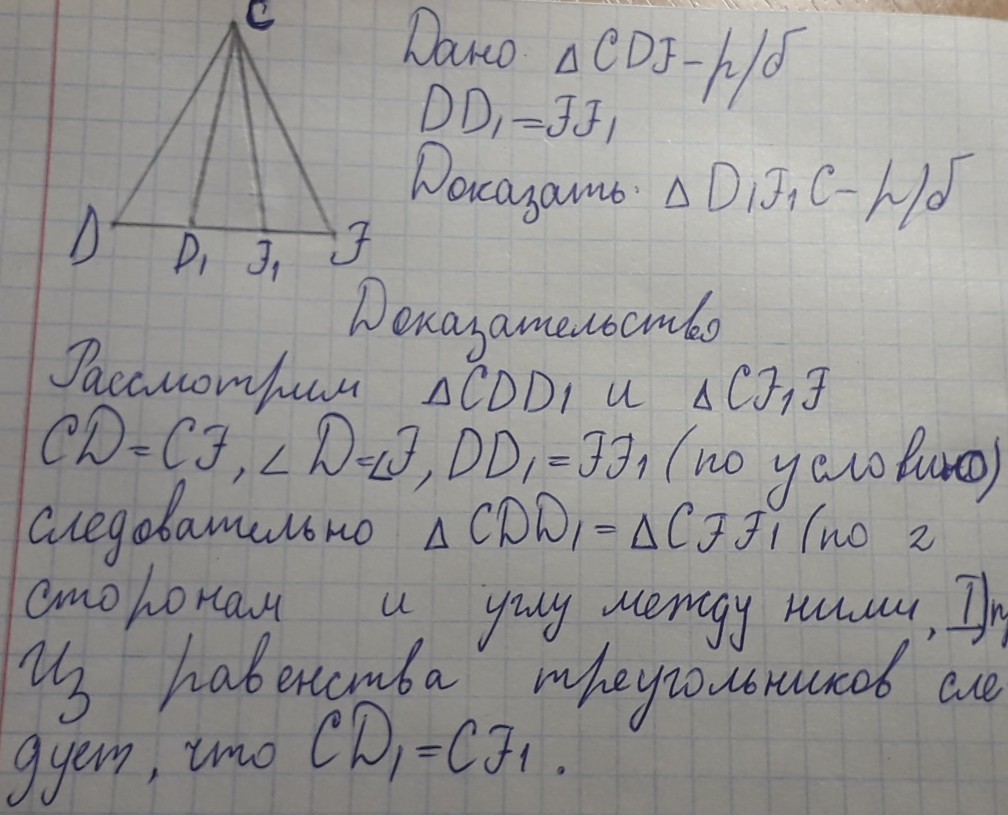 C
Дано: △CDF-р/б
DD₁=FF₁
Доказать: △D₁F₁C-р/б
D D₁ F₁ F
Доказательство
Рассмотрим △CDD₁ и △CF₁F
CD=CF, ∠D=∠F, DD₁=FF₁ (по условию)
следовательно △CDD₁=△CFF₁ (по 2
сторонам и углу между ними, I)п
Из равенства треугольников сле
дует, что CD₁=CF₁.